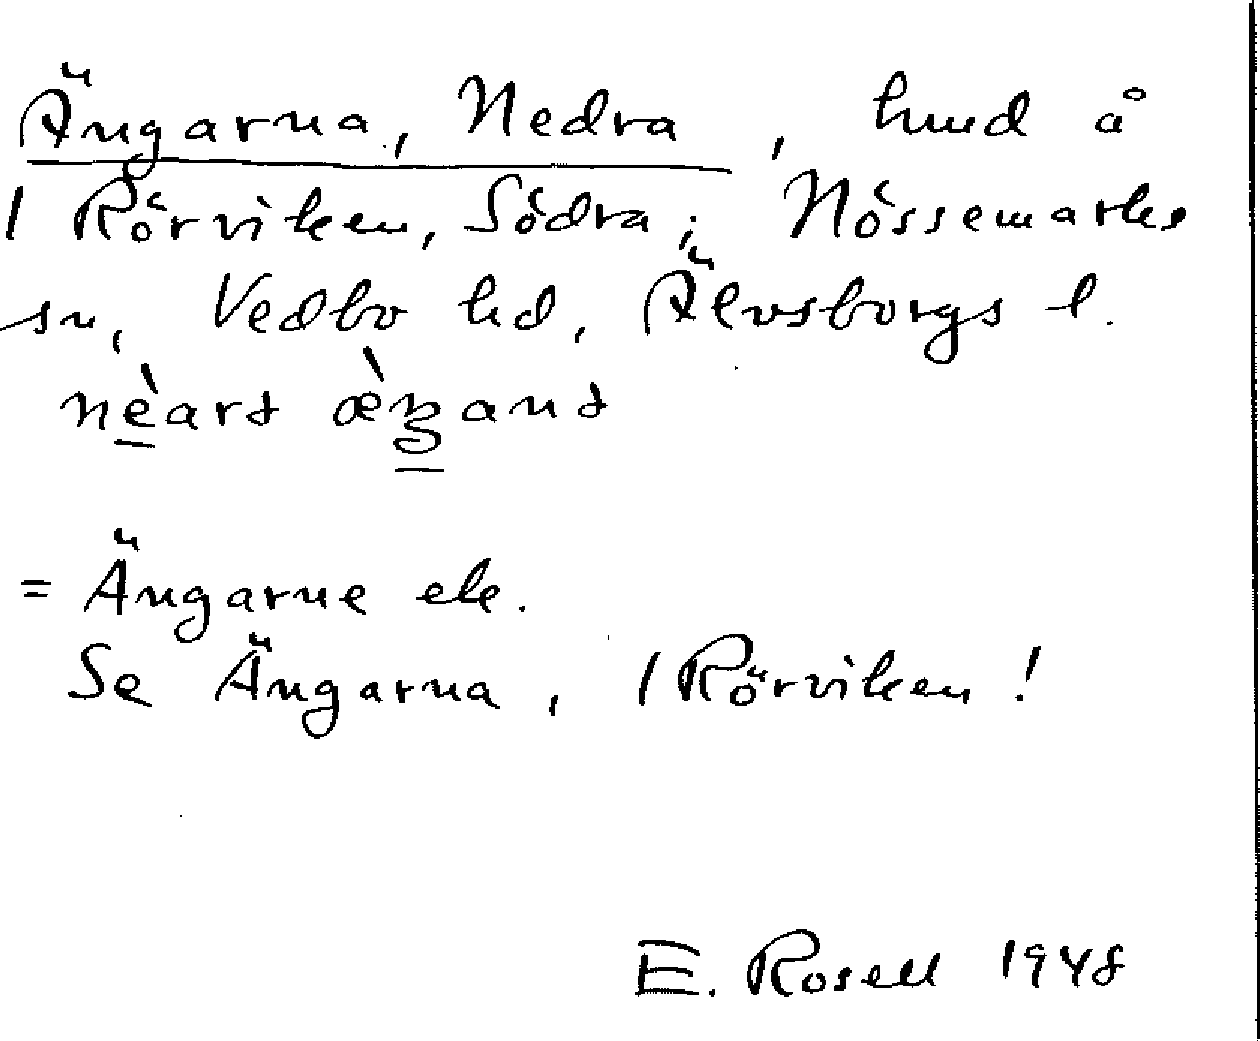 Ängarna, Nedra, hmd å
1 Rörviken, Södra; Nössemarks
sn, Vedbo hd, Älvsborgs l.
= Ängarne ek.
Se Ängarna, 1 Rörviken!
E. Rosell 1948